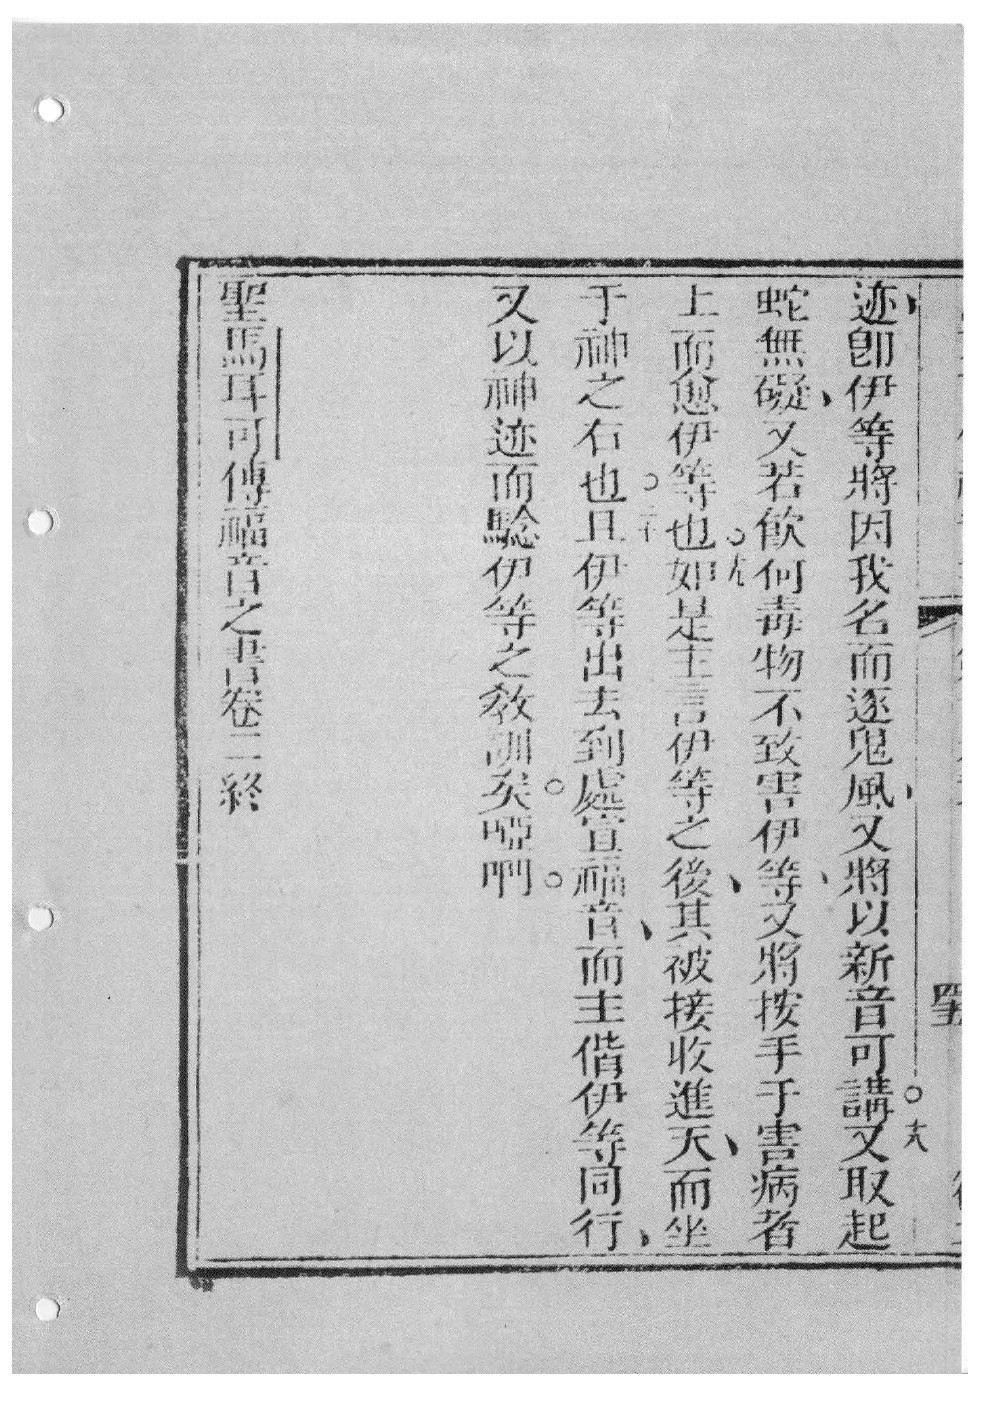 迹、卽伊等將因我名而逐鬼風、又將以新音可講。十八又取起
蛇無礙、又若飮何毒物不致害伊等、又將按手于害病者
上而愈伊等也。十九如是主言伊等之後、其被接收進天、而坐
于神之右也。二十且伊等出去到處宣福音、而主偕伊等同行、
又以神迹而驗伊等之敎訓矣。啞啊。
聖馬耳可傳福音之書卷二終